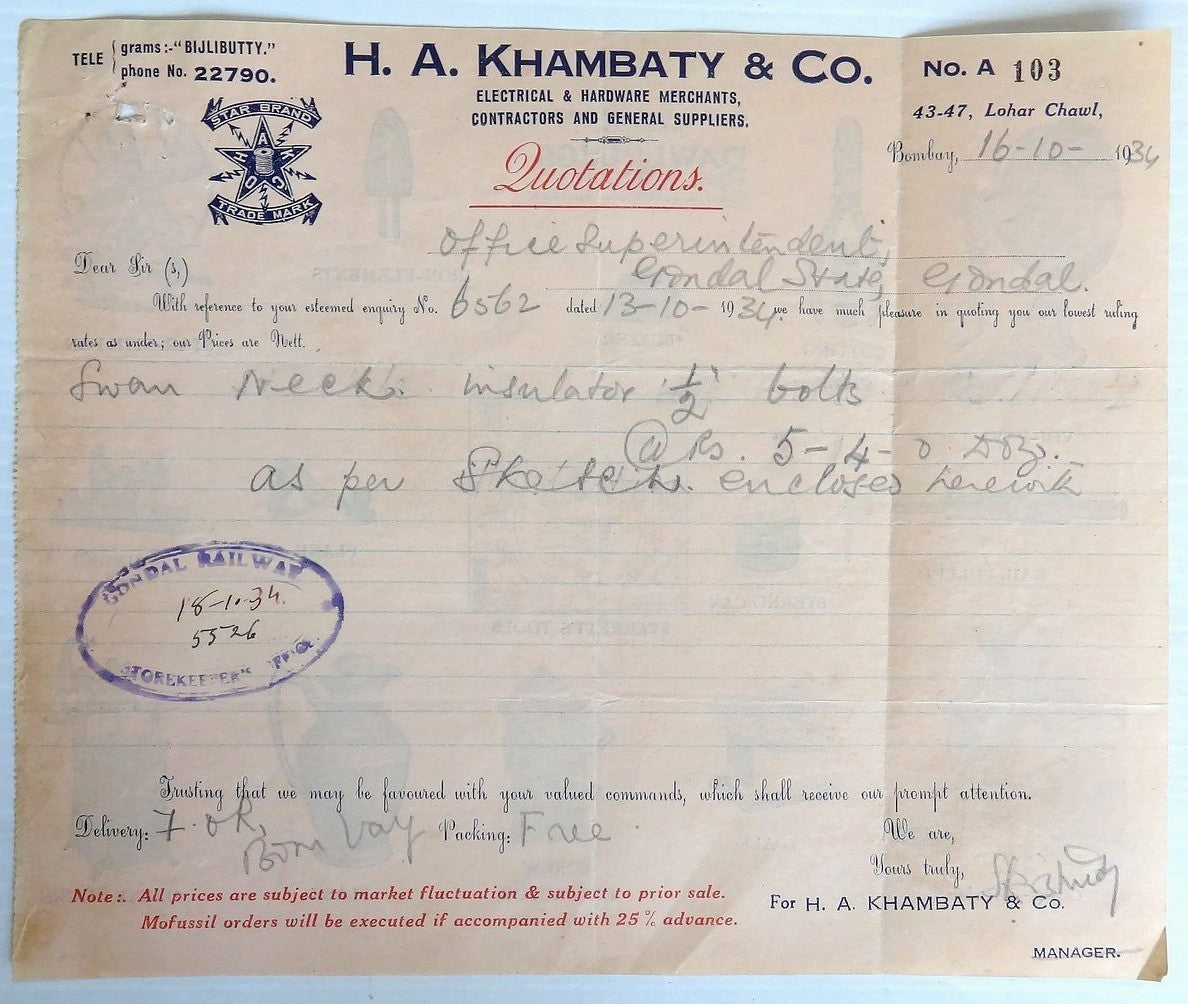 TELE grams:-"BIJLIBUTTY."
phone No. 22790.
H. A. KHAMBATY & CO.
No. A 103
ELECTRICAL & HARDWARE MERCHANTS,
CONTRACTORS AND GENERAL SUPPLIERS.
43-47, Lohar Chawl,
Bombay, 16-10-1934
STAR BRAND
H A K C O
TRADE MARK
Quotations.
Office Superintendent,
Dear Sir (s,)
Gondal State Gondal.
With reference to your esteemed enquiry No. 6562 dated 13-10-1934 we have much pleasure in quoting you our lowest ruling
rates as under; our Prices are Nett.
Swan Neck insulator 1/2" bolts
@ Rs. 5-4-0 Doz.
as per Sketch encloses herewith
GONDAL RAILWAY
18-10-34.
5526
STOREKEEPER'S OFFICE
Trusting that we may be favoured with your valued commands, which shall receive our prompt attention.
Delivery: F.O.R, Packing: Free
Bombay
We are,
Yours truly,
Note:. All prices are subject to market fluctuation & subject to prior sale.
For H. A. KHAMBATY & CO.
Mofussil orders will be executed if accompanied with 25% advance.
MANAGER.